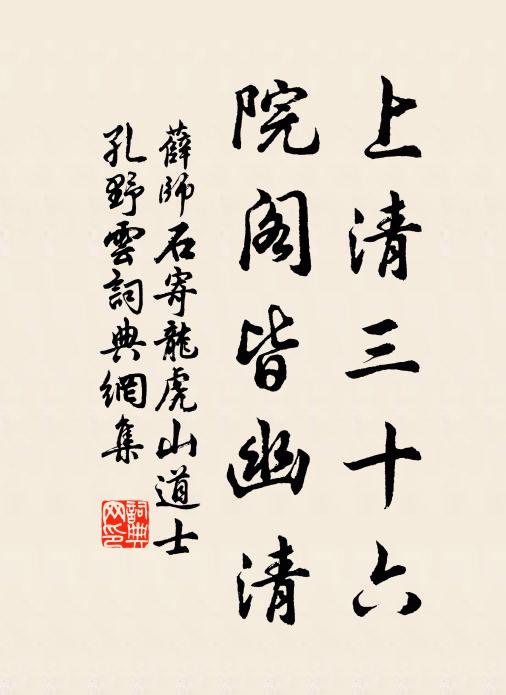 上清三十六
院阁皆幽清
薛師石寄龍虎山道士
孔野雲詞典網集
詞典网印